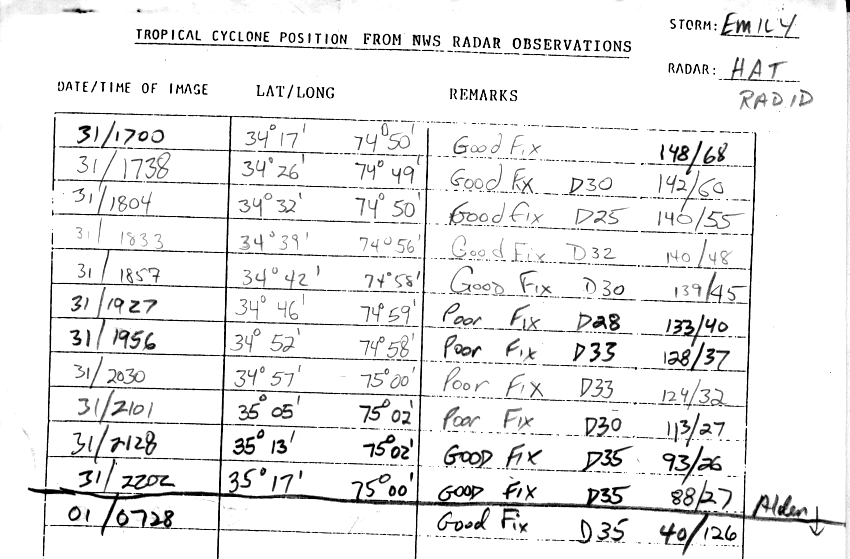 STORM: EMILY
TROPICAL CYCLONE POSITION FROM NWS RADAR OBSERVATIONS
RADAR: HAT
RADID
DATE/TIME OF IMAGE LAT/LONG REMARKS
31/1700 34°17' 74°50' Good Fix 148/68
31/1738 34°26' 74°49' Good Fix D30 142/60
31/1804 34°32' 74°50' Good fix D25 140/55
31/1833 34°39' 74°56' Good Fix D32 140/48
31/1857 34°42' 74°58' Good Fix D30 139/45
31/1927 34°46' 74°59' Poor Fix D28 133/40
31/1956 34°52' 74°58' Poor Fix D33 128/37
31/2030 34°57' 75°00' Poor Fix D33 124/32
31/2101 35°05' 75°02' Poor Fix D30 113/27
31/2128 35°13' 75°02' GOOD FIX D35 93/26
31/2202 35°17' 75°00' GOOD FIX D35 88/27 Alden ↓
01/0728 Good Fix D35 40/126